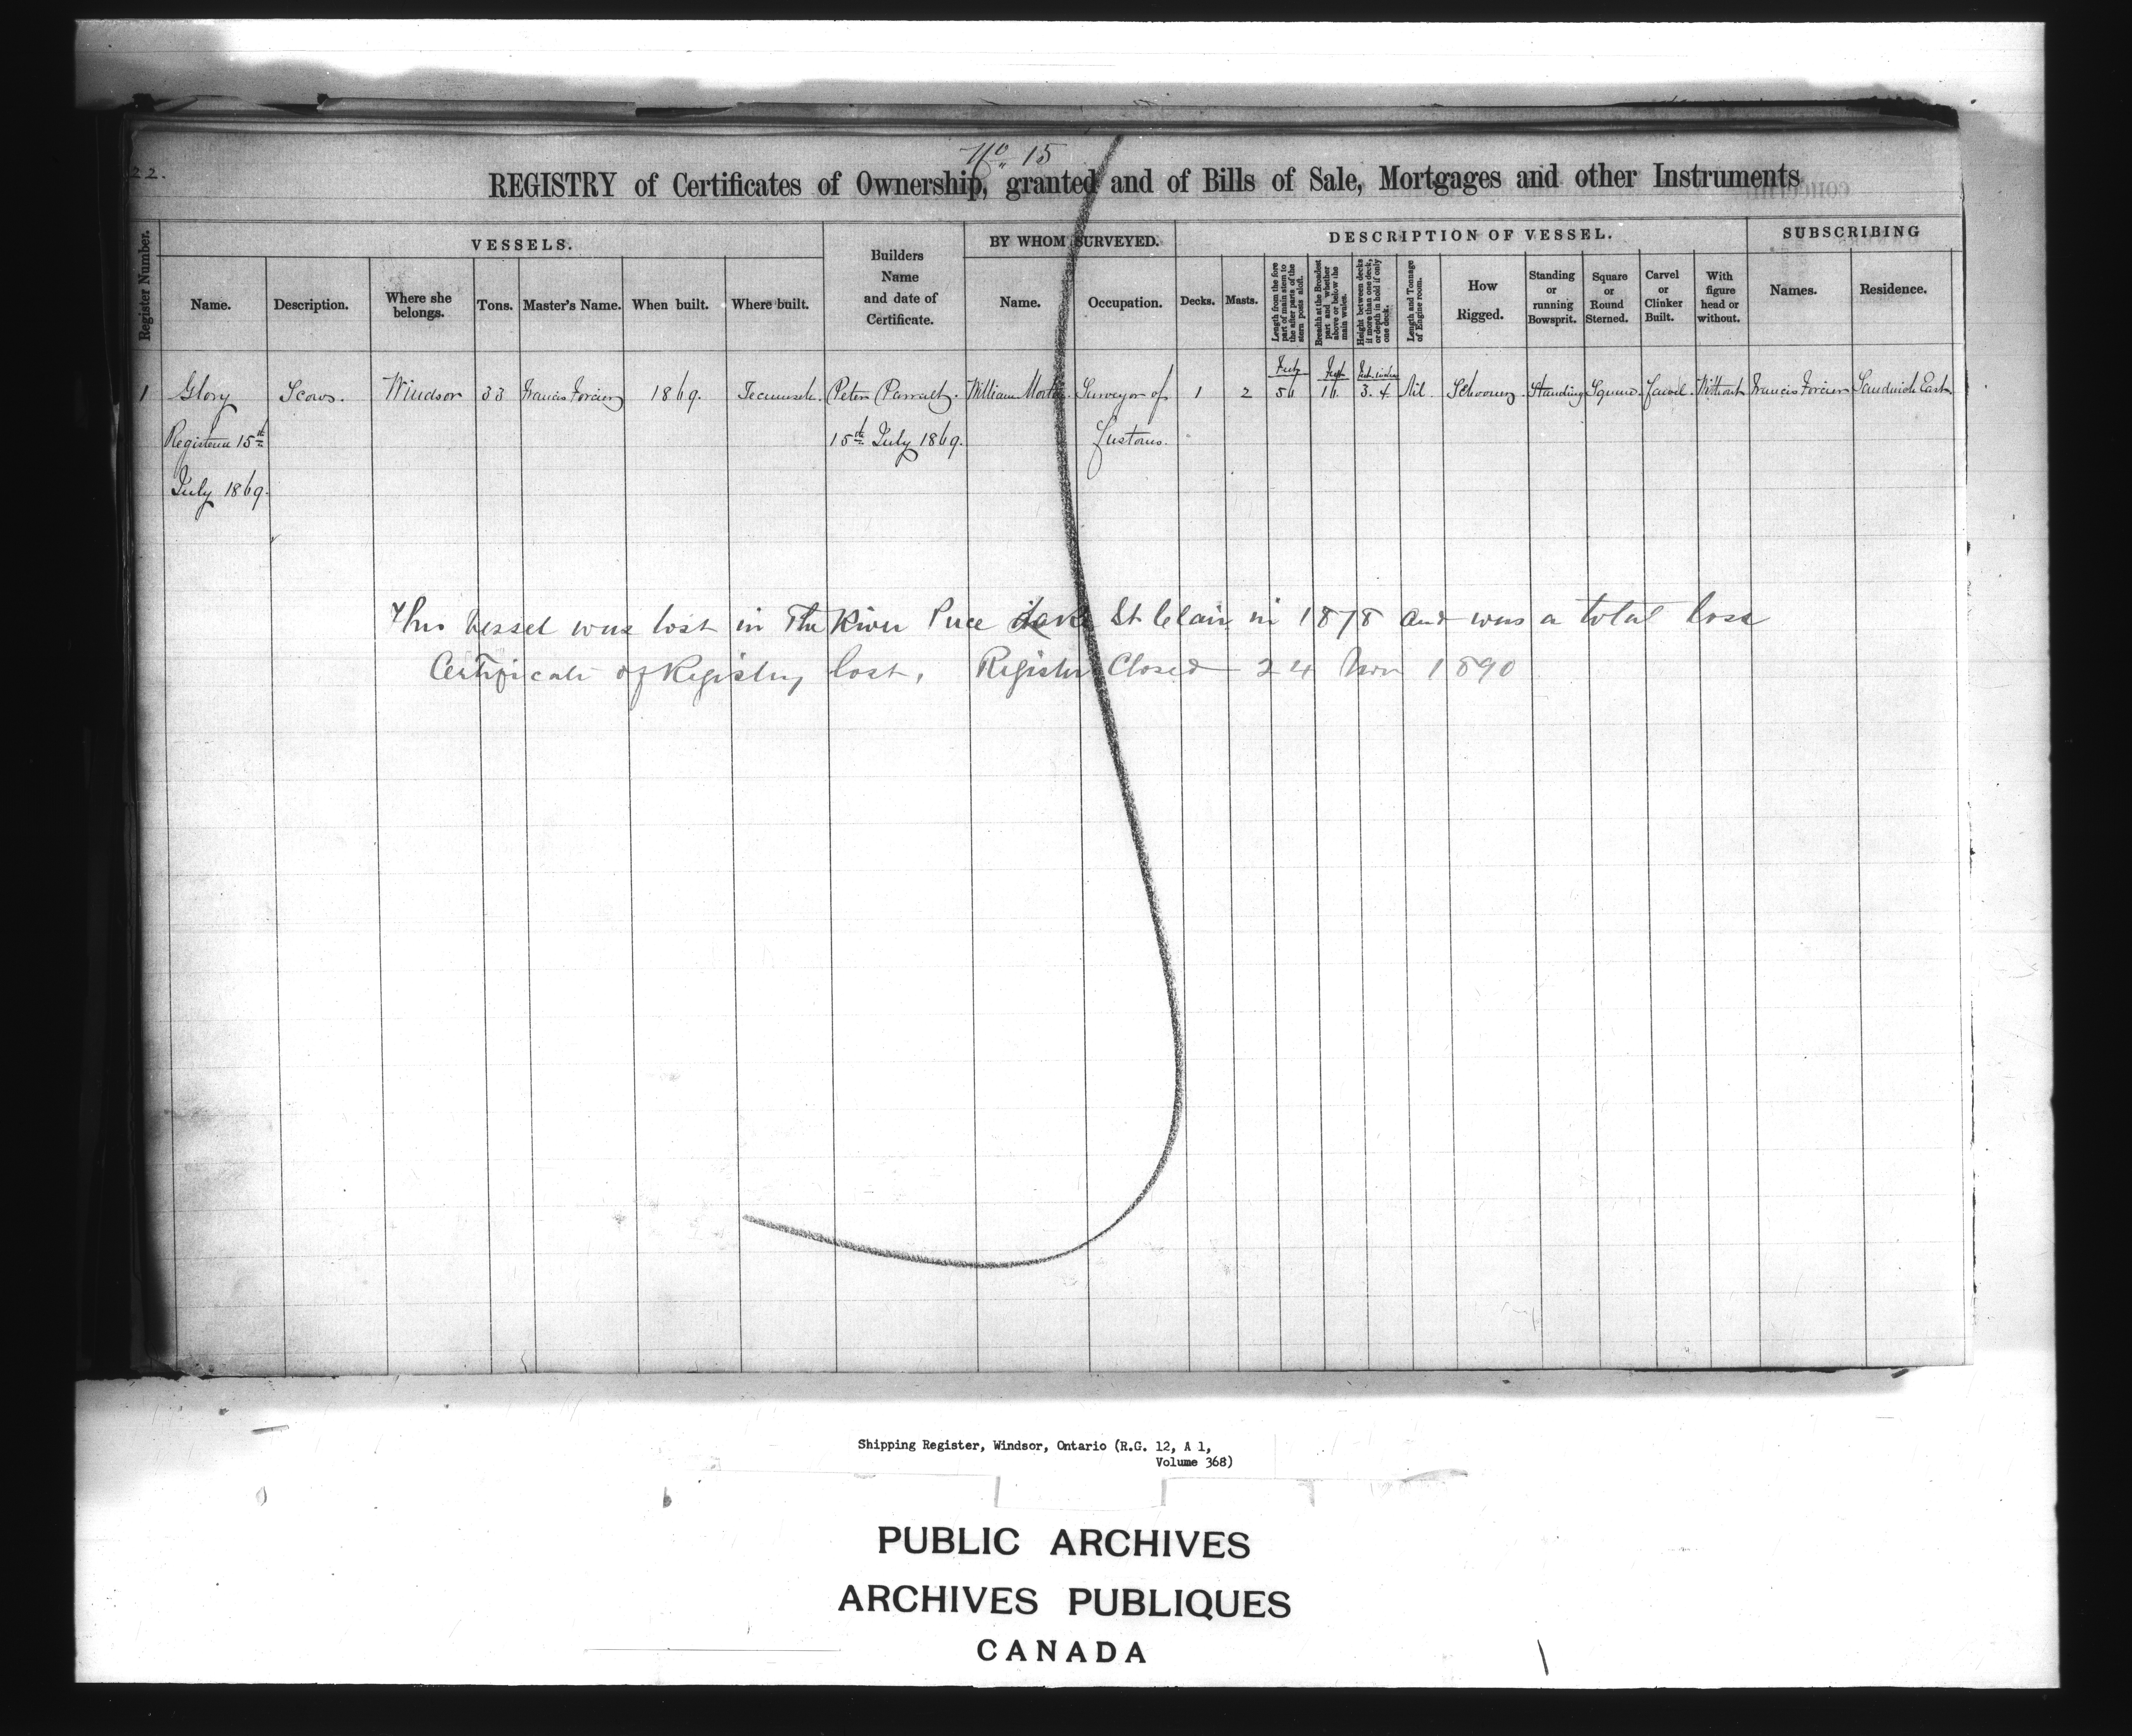 22.
No 15
REGISTRY of Certificates of Ownership, granted and of Bills of Sale, Mortgages and other Instruments
Register Number.
VESSELS.
Name.
Description.
Where she belongs.
Tons.
Master's Name.
When built.
Where built.
Builders Name and date of Certificate.
BY WHOM SURVEYED.
Name.
Occupation.
DESCRIPTION OF VESSEL.
Decks.
Masts.
Length from the fore part of main stem to the after parts of the stern posts aloft.
Breadth at the Broadest part and whether above or below the main wales.
Height between decks if more than one deck, or depth in hold if only one deck.
Length and Tonnage of Engine room.
How Rigged.
Standing or running Bowsprit.
Square or Round Sterned.
Carvel or Clinker Built.
With figure head or without.
SUBSCRIBING
Names.
Residence.
1 Glory Scow. Windsor 33 Francis Forcier 1869. Tecumseh. Peter William Surveyor of 1 2 Feet 56 Feet 16. Feet. inches 3. 4 Nil. Schooner. Standing Square. Carvel. Without Francis Forcier Sandwich East
Registered 15th 15th July 1869. Customs.
July 1869.
This Vessel was lost in The River Puce Lake St Clair in 1878 and was a total loss
Certificate of Registry lost, Register Closed 24 Nov 1890
Shipping Register, Windsor, Ontario (R.G. 12, A 1,
Volume 368)
PUBLIC ARCHIVES
ARCHIVES PUBLIQUES
CANADA